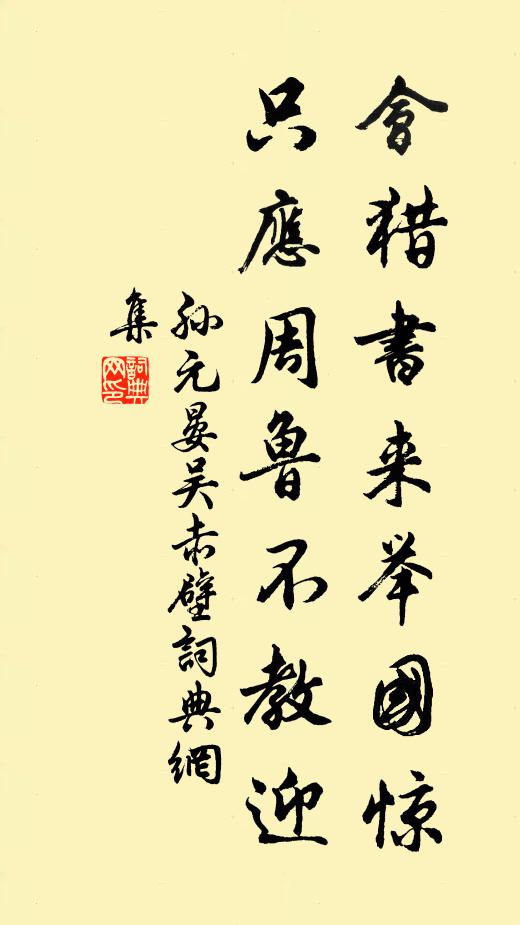 會猎書来举國惊
只應周魯不教迎
孙元晏吴赤壁詞典網
集
詞典网印